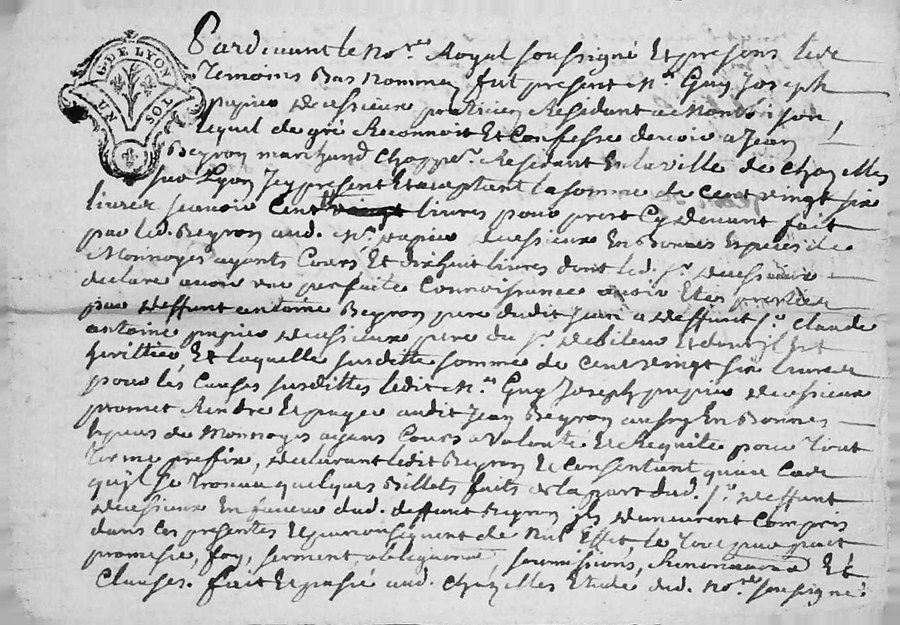 G. DE LYON
UN SOL
Pardevant le No.re Royal soussigné Et presens les
Temoins Bas nommes, fut present M.r Guy Joseph
papire praticien Residant a Montbrison,
lequel de gré Reconnoit Et Confesse devoir a Jean
Beyron marchand Chappe.r Residant En la ville de Chazelles
sur Lyon Jcy present Et acceptant la somme de Cent vingt six
livres scavoir Cent livres pour prest Cy devant fait
par led. Beyron aud. M.r papire En Bonnes Especes de
Monnoyes ayants Cours Et dixhuit livres dont led. S.r
declare avoir eu parfaite Connoissance avoir Etés prestées
par deffunt antoine Beyron pere dudit Jean a deffunt S.r Claude
antoine papire pere du S.r debiteur Et dont il Est
heritier, Et laquelle susditte somme de Cent vingt six livres
pour les Causes susdittes ledit M.r Guy Joseph papire
promet Rendre Et payer audit Jean Beyron aussy En Bonnes
Especes de Monnoyes ayans Cours a volonté Et Requite pour tout
terme prefix, declarant ledit Beyron Et Consentant qu'au Cas
qu'il se trouva quelques Billets faits de la part dud. S.r deffunt
En faveur dud. deffunt Beyron ils demeurent Compris
dans Ces presentes Et par Consequent de Nul Effet, le Tout par pact
promesse, foy, serment, soumissions, Renonciations Et
Clauses. fait Et passé aud. Chazelles Etude dud. No.re soussigné